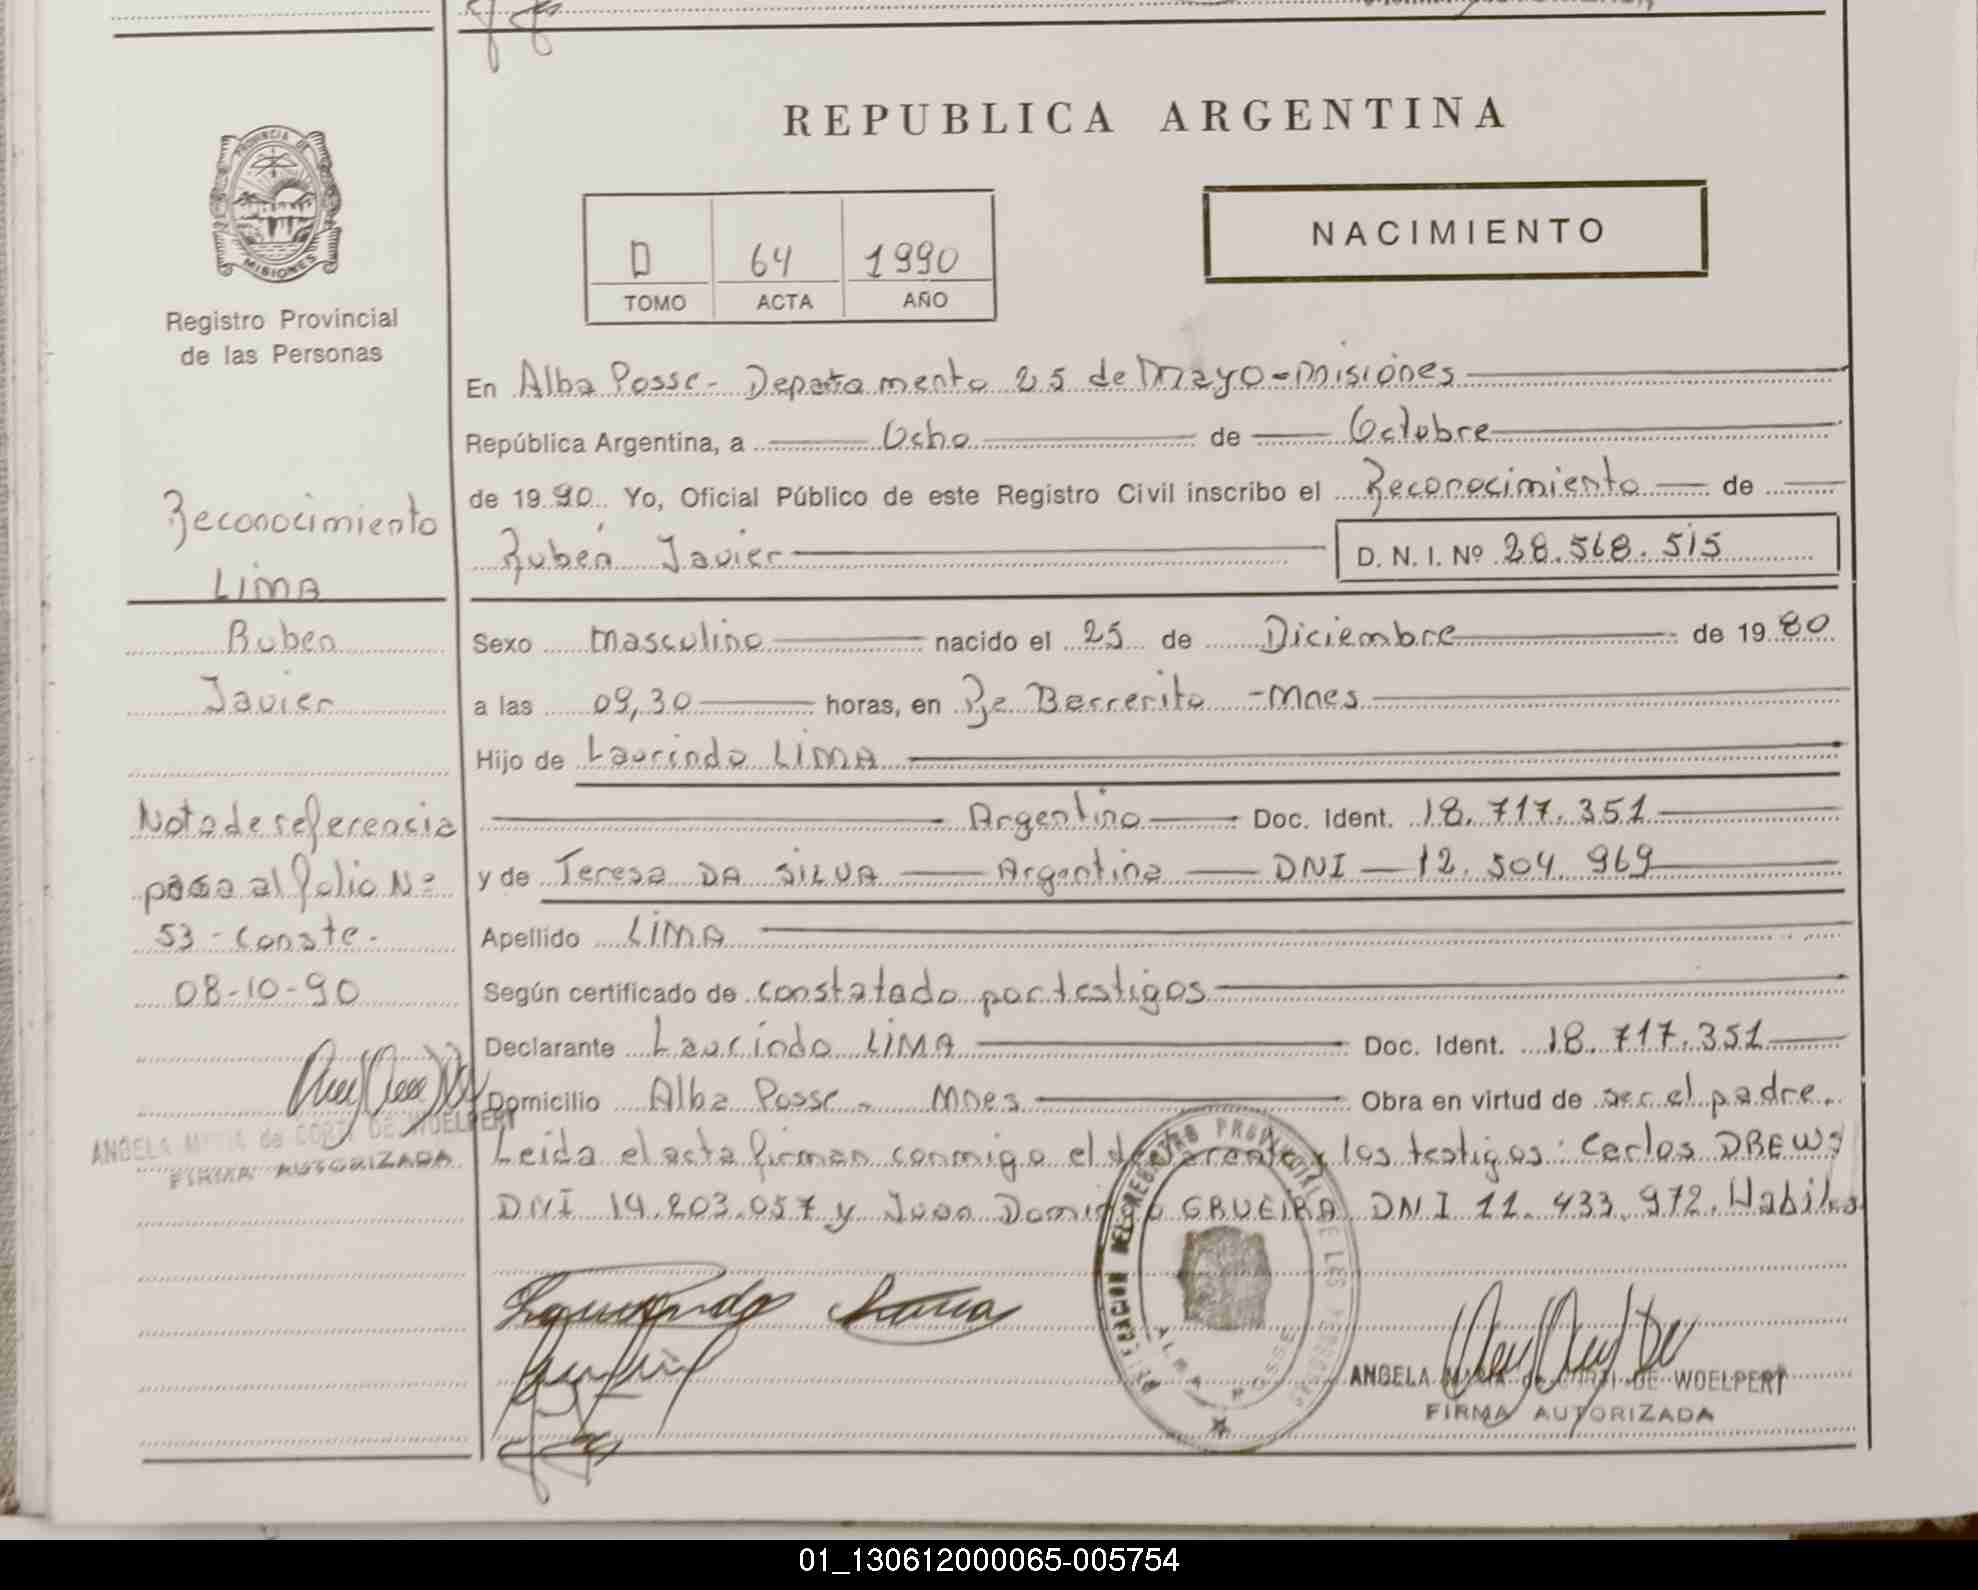 REPUBLICA ARGENTINA
PROVINCIA DE
MISIONES
Registro Provincial
de las Personas
D 64 1990
TOMO ACTA AÑO
NACIMIENTO
En Alba Posse - Departamento 25 de Mayo - Misiones
República Argentina, a Ocho de Octubre
de 1990 Yo, Oficial Público de este Registro Civil inscribo el Reconocimiento de
Rubén Javier D. N. I. Nº 28.568.515
Reconocimiento
LIMA
Ruben
Javier
Sexo masculino nacido el 25 de Diciembre de 1980
a las 09,30 horas, en Berrerito - Mnes
Hijo de Laurindo LIMA
Argentino Doc. Ident. 18.717.351
y de Teresa DA SILVA Argentina DNI - 12.504.969
Apellido LIMA
Según certificado de constatado por testigos
Declarante Laurindo LIMA Doc. Ident. 18.717.351
Domicilio Alba Posse - Mnes Obra en virtud de ser el padre.
Leida el acta firman conmigo el y los testigos: Carlos DREWS
DNI 14.203.057 y Juan Domingo GRUEIRA DNI 11.433.972.
Nota de referencia
pasa al folio Nº
53 - Conste -
08-10-90
ANGELA MARIA de CORTI DE WOELPERT
FIRMA AUTORIZADA
DELEGACION DEL REGISTRO PROVINCIAL DE LAS PERSONAS
ALBA POSSE
ANGELA MARIA de CORTI DE WOELPERT
FIRMA AUTORIZADA
01_130612000065-005754